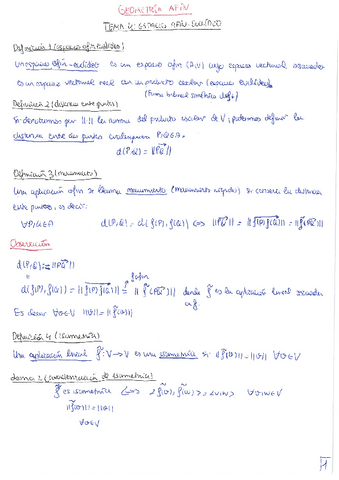 GEOMETRÍA AFÍN
TEMA 2: ESPACIO AFÍN-EUCLÍDEO
Definición 1 (espacio afín euclídeo)
Un espacio afín-euclídeo es un espacio afín (A,V) cuyo espacio vectorial asociado
es un espacio vectorial real con un producto escalar (espacio euclídeo)
(forma bilineal simétrica def +)
Definición 2 (distancia entre puntos)
Si denotamos por ||·|| la norma del producto escalar de V, podemos definir la
distancia entre dos puntos cualesquiera P,Q∈A.
d(P,Q) = ||PQ||
Definición 3 (movimiento)
Una aplicación afín se llama movimiento (movimiento rígido) si conserva la distancia
entre puntos, es decir:
∀P,Q∈A d(P,Q) = d(f(P), f(Q)) ⟺ ||PQ|| = ||f(P)f(Q)|| = ||f(PQ)||
Observación
d(P,Q) = ||PQ||
=
f afín
d(f(P), f(Q)) = ||f(P)f(Q)|| = ||f(PQ)|| donde f es la aplicación lineal asociada
a f.
Es decir ∀v∈V ||v|| = ||f(v)||
Definición 4 (isometría)
Una aplicación lineal f: V → V es una isometría si ||f(v)|| = ||v|| ∀v∈V
Lema 1 (caracterización de isometría)
f es isometría ⟺ <f(v), f(w)> = <v,w> ∀v,w∈V
||f(v)|| = ||v||
∀v∈V